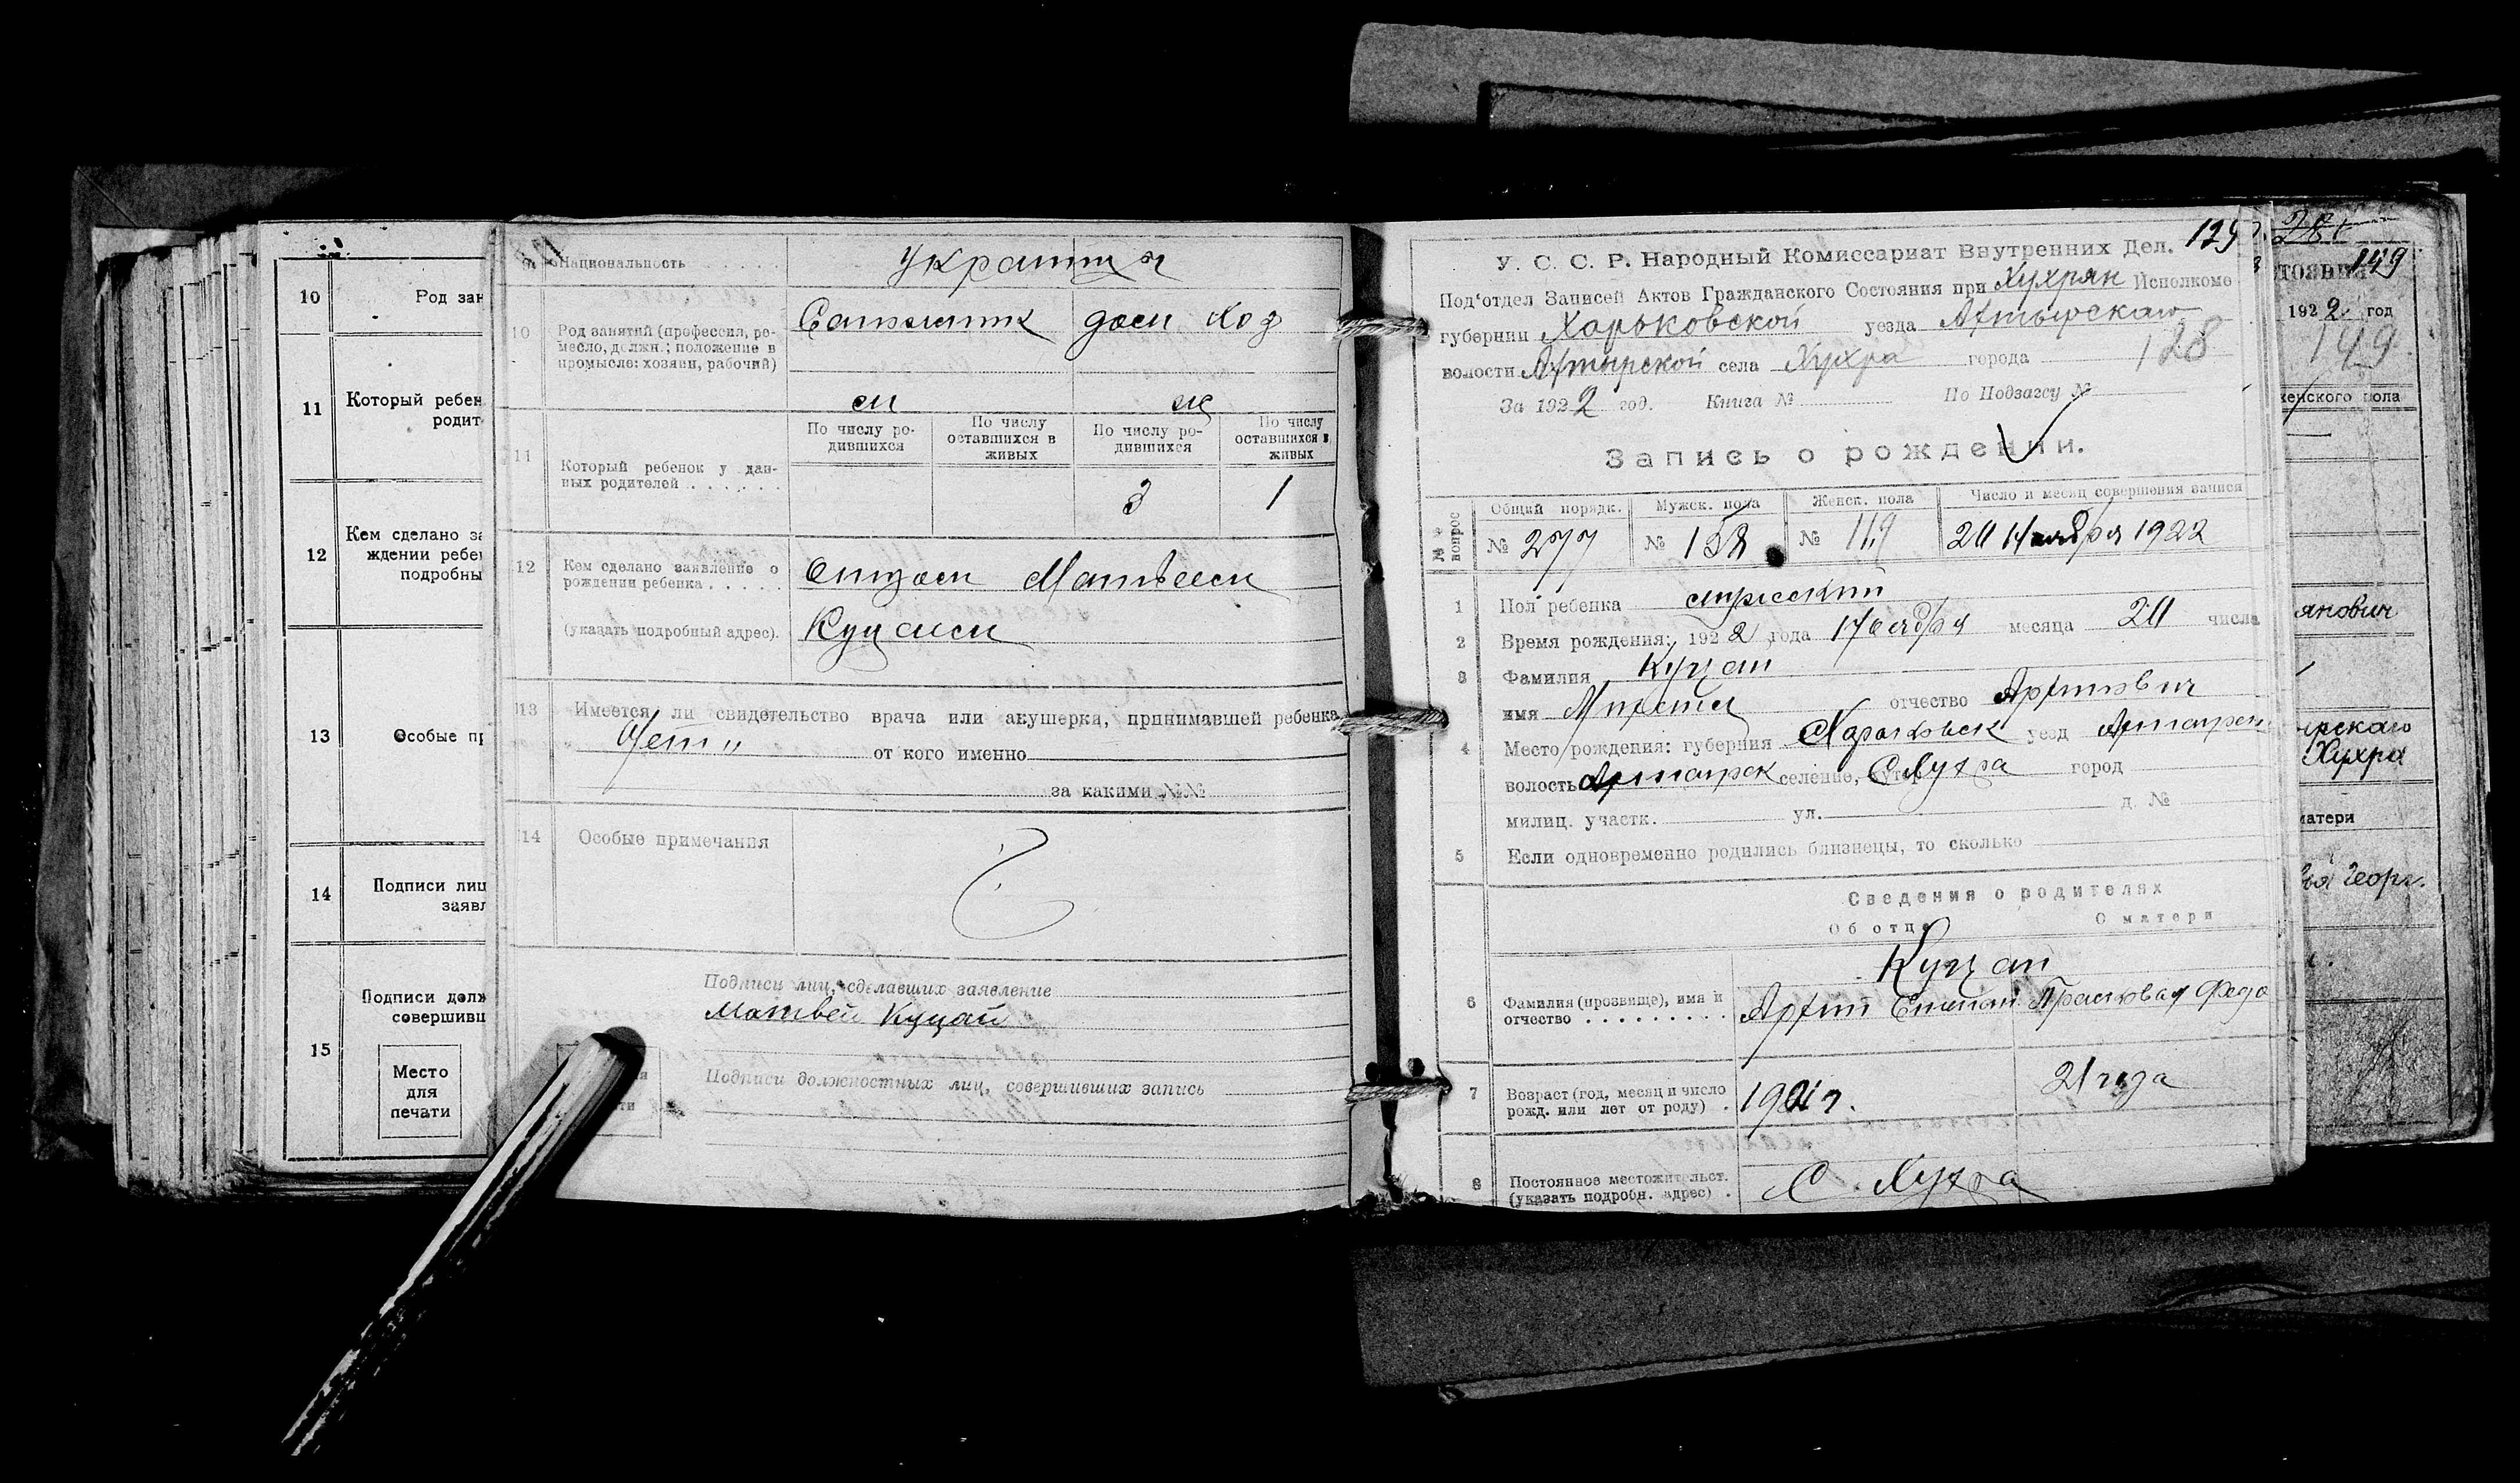 10
Род зан
11
Который ребен
родит
12
Кем сделано за
ждении ребе
подробны
13
Особые пр
14
Подписи лиц
заявл
15
Подписи долж
совершивш
Место
для
печати
Национальность . . . . .
10
Род занятий (профессия, ре-
месло, должн.; положение в
промысле: хозяин, рабочий)
дом хоз
11
Который ребенок у дан-
ных родителей . . . . . .
По числу ро-
дившихся
По числу
оставшихся в
живых
По числу ро-
дившихся
По числу
оставшихся в
живых
3
1
12
Кем сделано заявление о
рождении ребенка . . . . .
(указать подробный адрес).
Матвеем
13
Имеется ли свидетельство врача или акушерки, принимавшей ребенка
от кого именно
за какими №№
14
Особые примечания
Подписи лиц, сделавших заявление
Матвей Куцай
Подписи должностных лиц, совершивших запись
129
У. С. С. Р. Народный Комиссариат Внутренних Дел.
Под'отдел Записей Актов Гражданского Состояния при Хухрян Исполкоме
губернии Харьковской уезда Ахтырскаго
волости Ахтырской села Хухра города
128
За 1922 год. Книга № По Подзагсу №
Запись о рождении.
№№ вопрос
Общий порядк.
Мужск. пола
Женск. пола
Число и месяц совершения записи
№ 277
№ 158
№ 119
20 Ноября 1922
1
Пол ребенка мужской
2
Время рождения: 1922 года Ноября месяца 20 числа
3
Фамилия Куцай
имя отчество
4
Место рождения: губерния Харьковск уезд Ахтырск
волость Ахтырск селение, хутор С Хухра город
милиц. участк. ул. д. №
5
Если одновременно родились близнецы, то сколько
Сведения о родителях
Об отце
О матери
6
Фамилия (прозвище), имя и
отчество . . . . . . . . .
Куцай
Прасковья Федо
7
Возраст (год, месяц и число
рожд. или лет от роду) .
21 года
8
Постоянное местожительст.
(указать подробн. адрес) .
С. Хухра
149
1922 год
149
женского пола
янович
ирскаго
Хухра
матери
Георг.